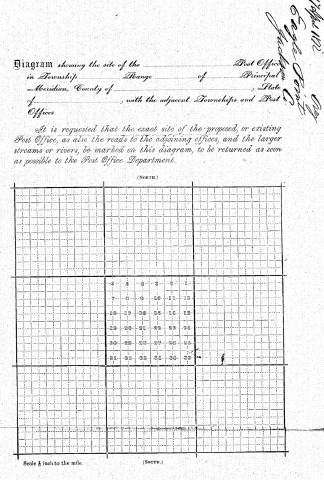 Diagram showing the site of the Post Office
in Township Range of Principal
Meridian, County of , State
of , with the adjacent Townships and Post
Offices.
It is requested that the exact site of the proposed, or existing
Post Office, as also the roads to the adjoining offices, and the larger
streams or rivers, be marked on this diagram, to be returned as soon
as possible to the Post Office Department.
(NORTH.)
6 5 4 3 2 1
7 8 9 10 11 12
18 17 16 15 14 13
19 20 21 22 23 24
30 29 28 27 26 25
31 32 33 34 35 36
Scale ½ inch to the mile.
(SOUTH.)